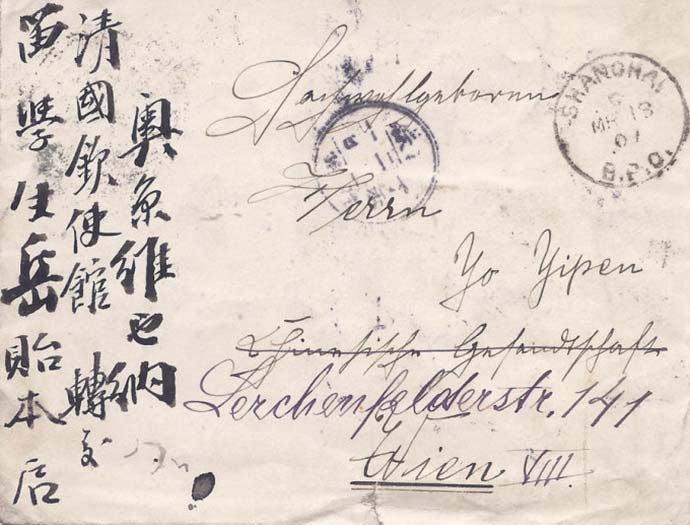 奧京維也納
清國欽使館 轉交
留學生岳貽本启
Hochwollgeboren
Herrn
Yo Yipen
Chinesische Gesandtschaft
Lerchenfelderstr. 141
Wien VIII.
SHANGHAI
MR 18
01
B.P.O.